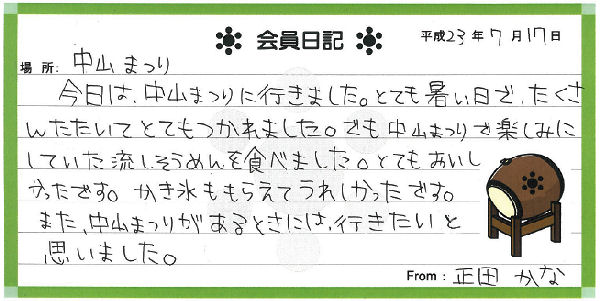 会員日記
平成23年7月17日
場所: 中山まつり
今日は、中山まつりに行きました。とても暑い日で、たくさ
んたたいてとてもつかれました。でも中山まつりで楽しみに
していた流しそうめんを食べました。とてもおいし
かったです。かき氷ももらえてうれしかったです。
また、中山まつりがあるときには、行きたいと
思いました。
From: 正田 かな